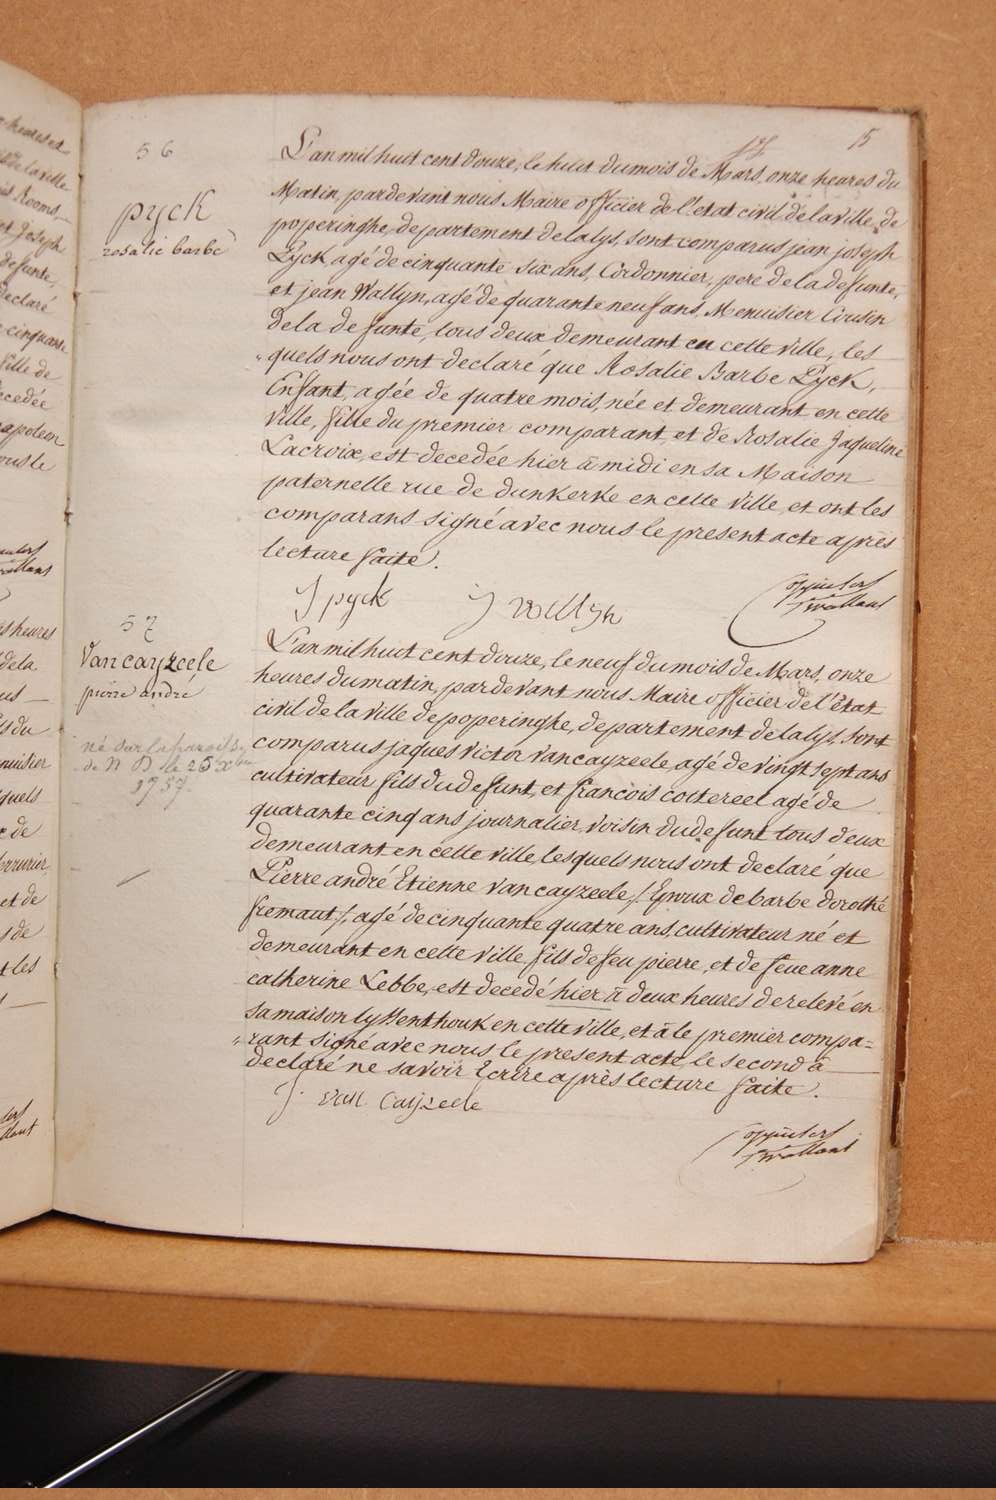 15
56
pyck
rosalie barbe
L'an mil huit cent douze, le huit du mois de Mars, onze heures du
Matin, pardevant nous Maire officier de l'etat civil de la ville, de
poperinghe, departement de la lys, sont comparus jean joseph
Pyck agé de cinquante six ans, Cordonnier, pere de la defunte,
et jean Wallyn, agé de quarante neuf ans, Menuisier Cousin
de la defunte, tous deux demeurant en cette ville, les
quels nous ont declaré que Rosalie Barbe Pyck,
Enfant, agée de quatre mois, née et demeurant en cette
ville, fille du premier comparant, et de Rosalie Jaqueline
Lacroix, est decedée hier à midi en sa Maison
paternelle rue de dunkerke en cette ville, et ont les
comparans signé avec nous le present acte après
lecture faite.
J pyck J wallyn
57
Van cayzeele
pierre andré
né sur la paroisse
de N D le 25 xbre
1757
L'an mil huit cent douze, le neuf du mois de Mars, onze
heures du matin, pardevant nous Maire officier de l'état
civil de la ville de poperinghe, departement de la lys, sont
comparus jaques victor vancayzeele, agé de vingt sept ans
cultivateur fils du defunt, et françois cottereel agé de
quarante cinq ans journalier, voisin du defunt tous deux
demeurant en cette ville, lesquels nous ont declaré que
Pierre andré Etienne vancayzeele, /Epoux de barbe dorothé
fremaut/, agé de cinquante quatre ans, cultivateur né et
demeurant en cette ville fils de feu pierre, et de feue anne
catherine Lebbe, est decedé hier à deux heures de relevé en
sa maison lyssenthouk en cette ville, et à le premier compa=
rant signé avec nous le present acte, le second à
declaré ne savoir Ecrire après lecture faite.
J. van Cayzeele